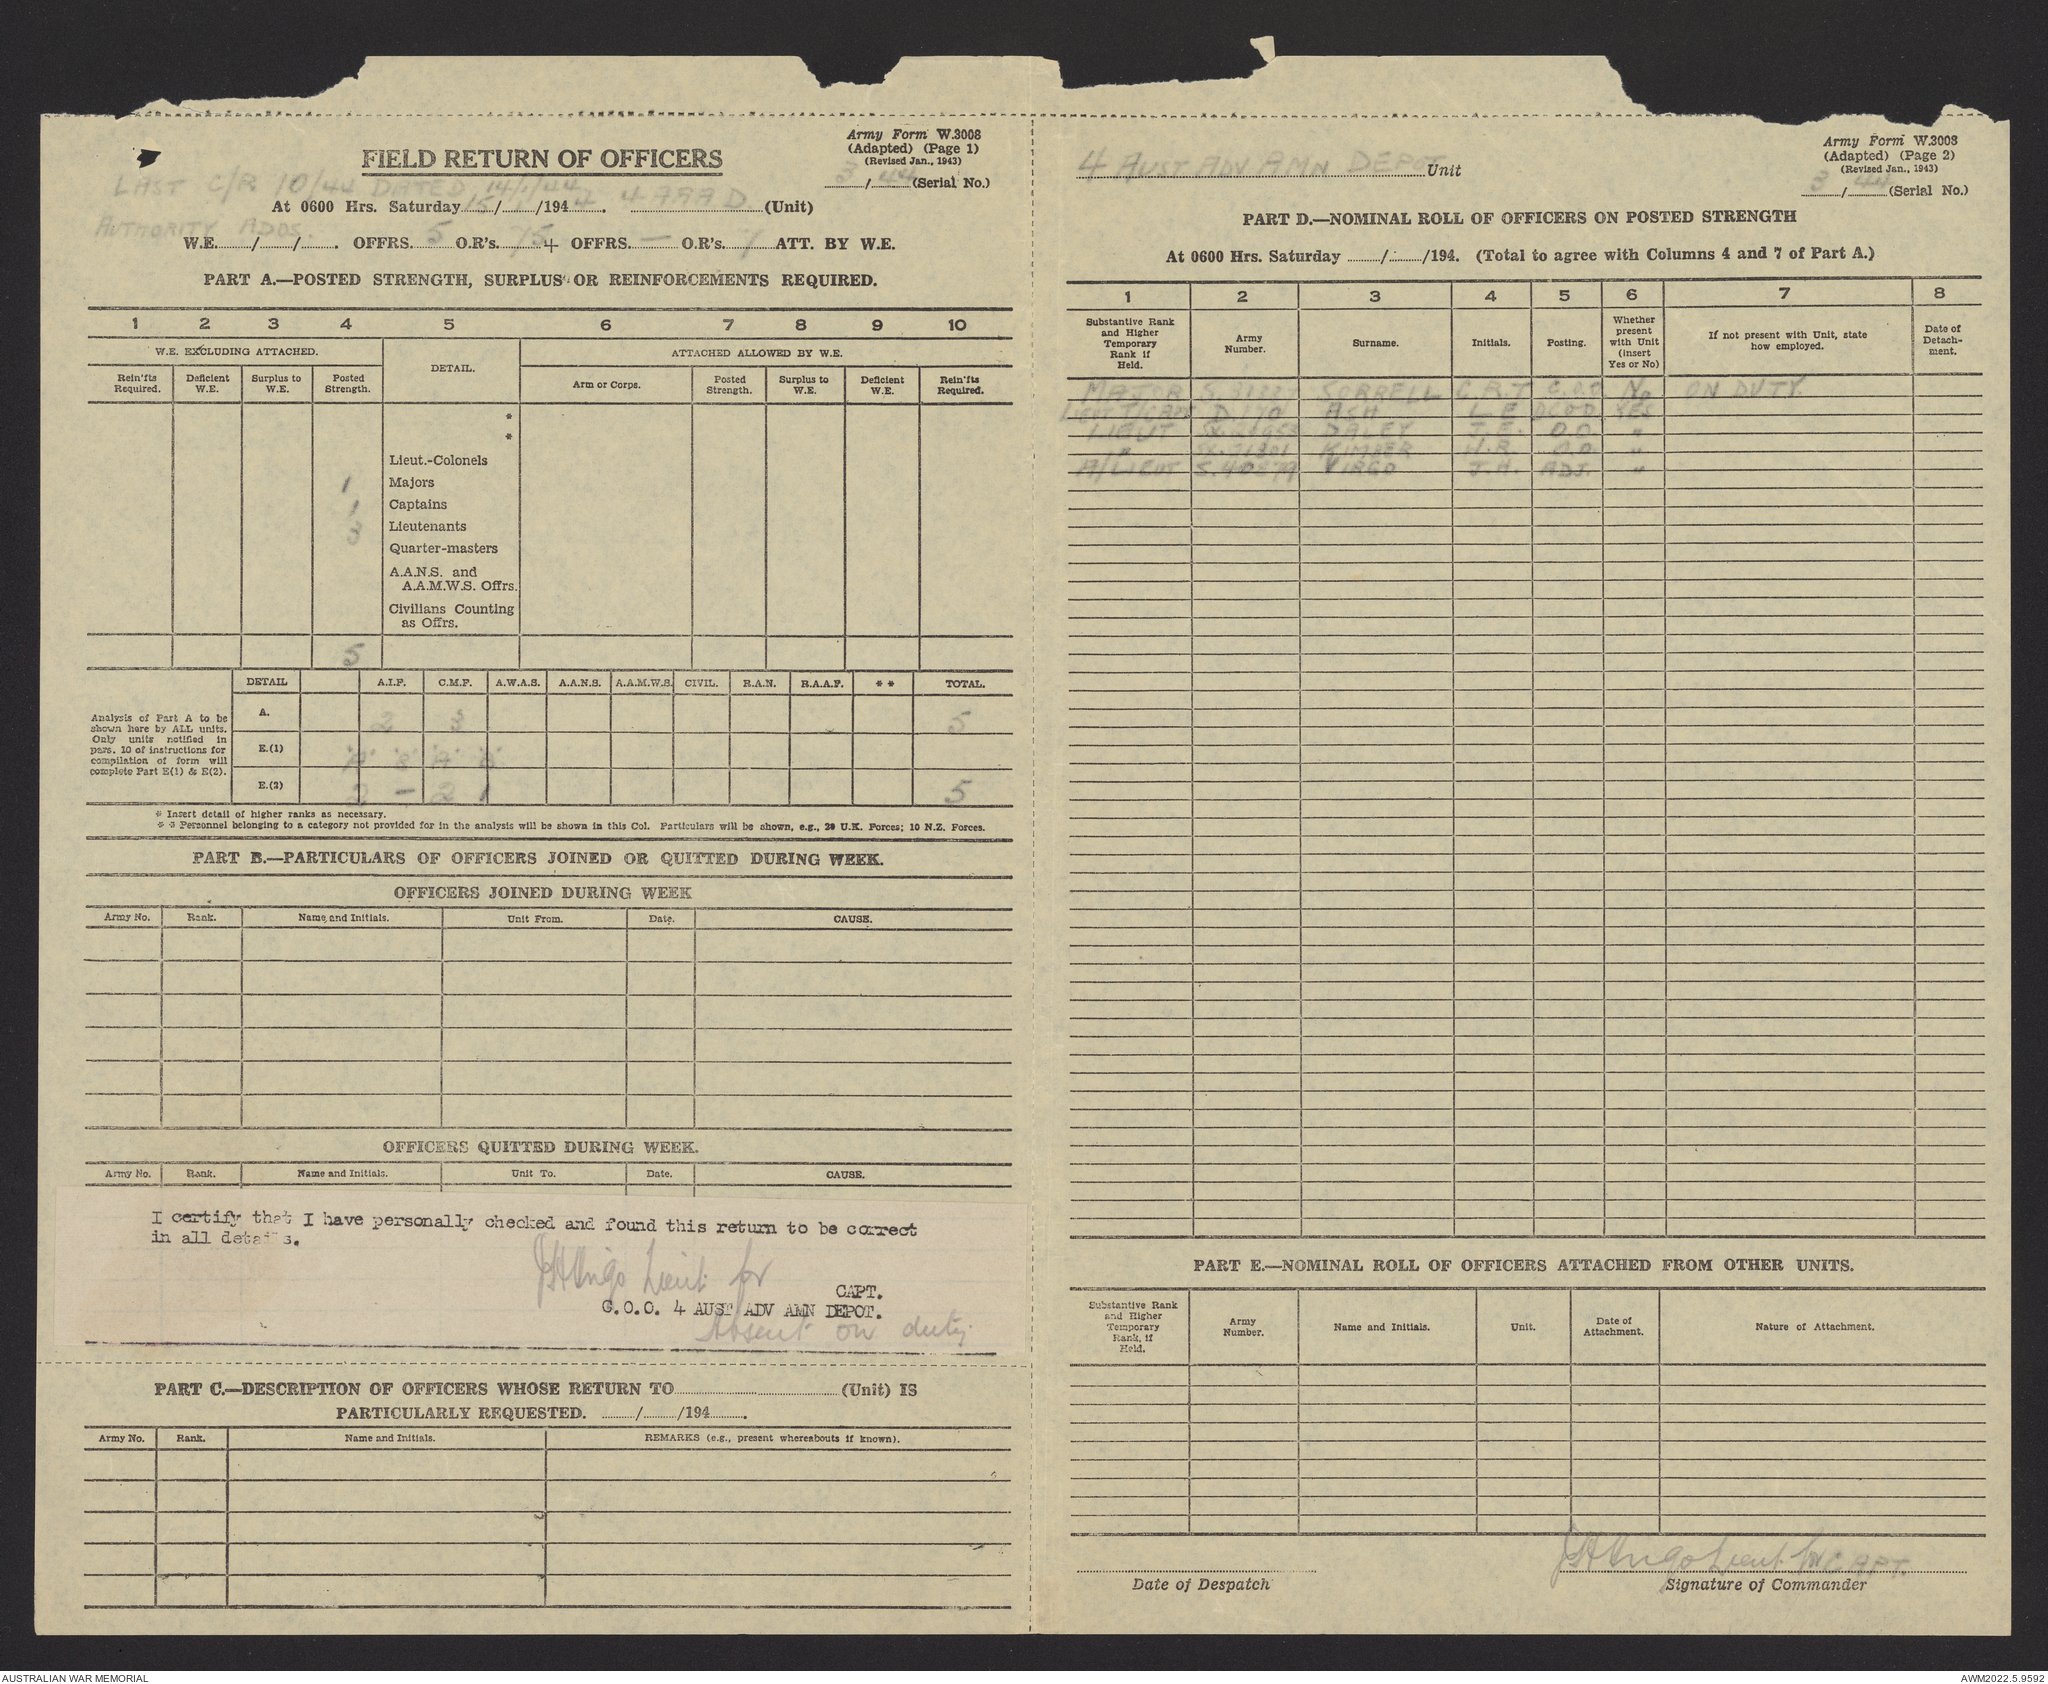 Army Form W.3008
(Adapted) (Page 1)
(Revised Jan., 1943)
3/44 (Serial No.)
FIELD RETURN OF OFFICERS
LAST C/R 10/44 DATED 14/1/44
At 0600 Hrs. Saturday 15/1/1944. 4 AAAD (Unit)
AUTHORITY ADOS.
W.E. / / . OFFRS. 5 O.R's. 75 + OFFRS. — O.R's. 7 ATT. BY W.E.
PART A.—POSTED STRENGTH, SURPLUS OR REINFORCEMENTS REQUIRED.
1 2 3 4 5 6 7 8 9 10
W.E. EXCLUDING ATTACHED. DETAIL. ATTACHED ALLOWED BY W.E.
Rein'fts Required. Deficient W.E. Surplus to W.E. Posted Strength. Arm or Corps. Posted Strength. Surplus to W.E. Deficient W.E. Rein'fts Required.
*
*
Lieut.-Colonels
1 Majors
1 Captains
3 Lieutenants
Quarter-masters
A.A.N.S. and
A.A.M.W.S. Offrs.
Civilians Counting
as Offrs.
5
DETAIL A.I.F. C.M.F. A.W.A.S. A.A.N.S. A.A.M.W.S. CIVIL. R.A.N. R.A.A.F. * * TOTAL.
Analysis of Part A to be
shown here by ALL units.
Only units notified in
para. 10 of instructions for
compilation of form will
complete Part E(1) & E(2).
A. 2 3 5
E.(1) "A" "B" "A" "B"
E.(2) 2 — 2 1 5
* Insert detail of higher ranks as necessary.
* * Personnel belonging to a category not provided for in the analysis will be shown in this Col. Particulars will be shown, e.g., 20 U.K. Forces; 10 N.Z. Forces.
PART B.—PARTICULARS OF OFFICERS JOINED OR QUITTED DURING WEEK.
OFFICERS JOINED DURING WEEK
Army No. Rank. Name and Initials. Unit From. Date. CAUSE.
OFFICERS QUITTED DURING WEEK.
Army No. Rank. Name and Initials. Unit To. Date. CAUSE.
I certify that I have personally checked and found this return to be correct
in all details.
JHVirgo Lieut. for
CAPT.
C.O.O. 4 AUST ADV AMN DEPOT.
Absent on duty
PART C.—DESCRIPTION OF OFFICERS WHOSE RETURN TO (Unit) IS
PARTICULARLY REQUESTED. / /194 .
Army No. Rank. Name and Initials. REMARKS (e.g., present whereabouts if known).
Army Form W.3008
(Adapted) (Page 2)
(Revised Jan., 1943)
3/44 (Serial No.)
4 AUST ADV AMN DEPOT Unit
PART D.—NOMINAL ROLL OF OFFICERS ON POSTED STRENGTH
At 0600 Hrs. Saturday / /194. (Total to agree with Columns 4 and 7 of Part A.)
1 2 3 4 5 6 7 8
Substantive Rank and Higher Temporary Rank if Held. Army Number. Surname. Initials. Posting. Whether present with Unit (insert Yes or No) If not present with Unit, state how employed. Date of Detachment.
MAJOR SORRELL C.R.T. C.O.O No ON DUTY.
LIEUT T/CAPT D.170 ASH L E OCOD YES
LIEUT DALEY J.E. O.O. "
" KIMBER H.R. O.O. "
A/LIEUT VIRGO J.H. ADJ. "
PART E.—NOMINAL ROLL OF OFFICERS ATTACHED FROM OTHER UNITS.
Substantive Rank and Higher Temporary Rank, if Held. Army Number. Name and Initials. Unit. Date of Attachment. Nature of Attachment.
JHVirgo Lieut. for CAPT.
Date of Despatch Signature of Commander
AUSTRALIAN WAR MEMORIAL AWM2022.5.9592